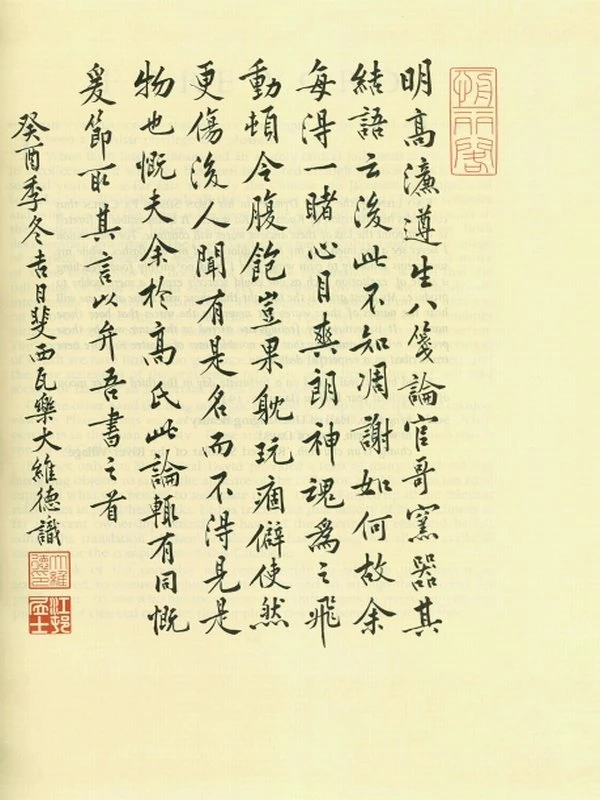 明高濂遵生八箋論官哥窯器其
結語云後此不知凋謝如何故余
每得一睹心目爽朗神魂爲之飛
動頓令腹飽豈果耽玩痼僻使然
更傷後人聞有是名而不得見是
物也慨夫余於高氏此論輒有同慨
爰節取其言以弁吾書之首
癸酉季冬吉日斐西瓦樂大維德識
大維德印
江邨